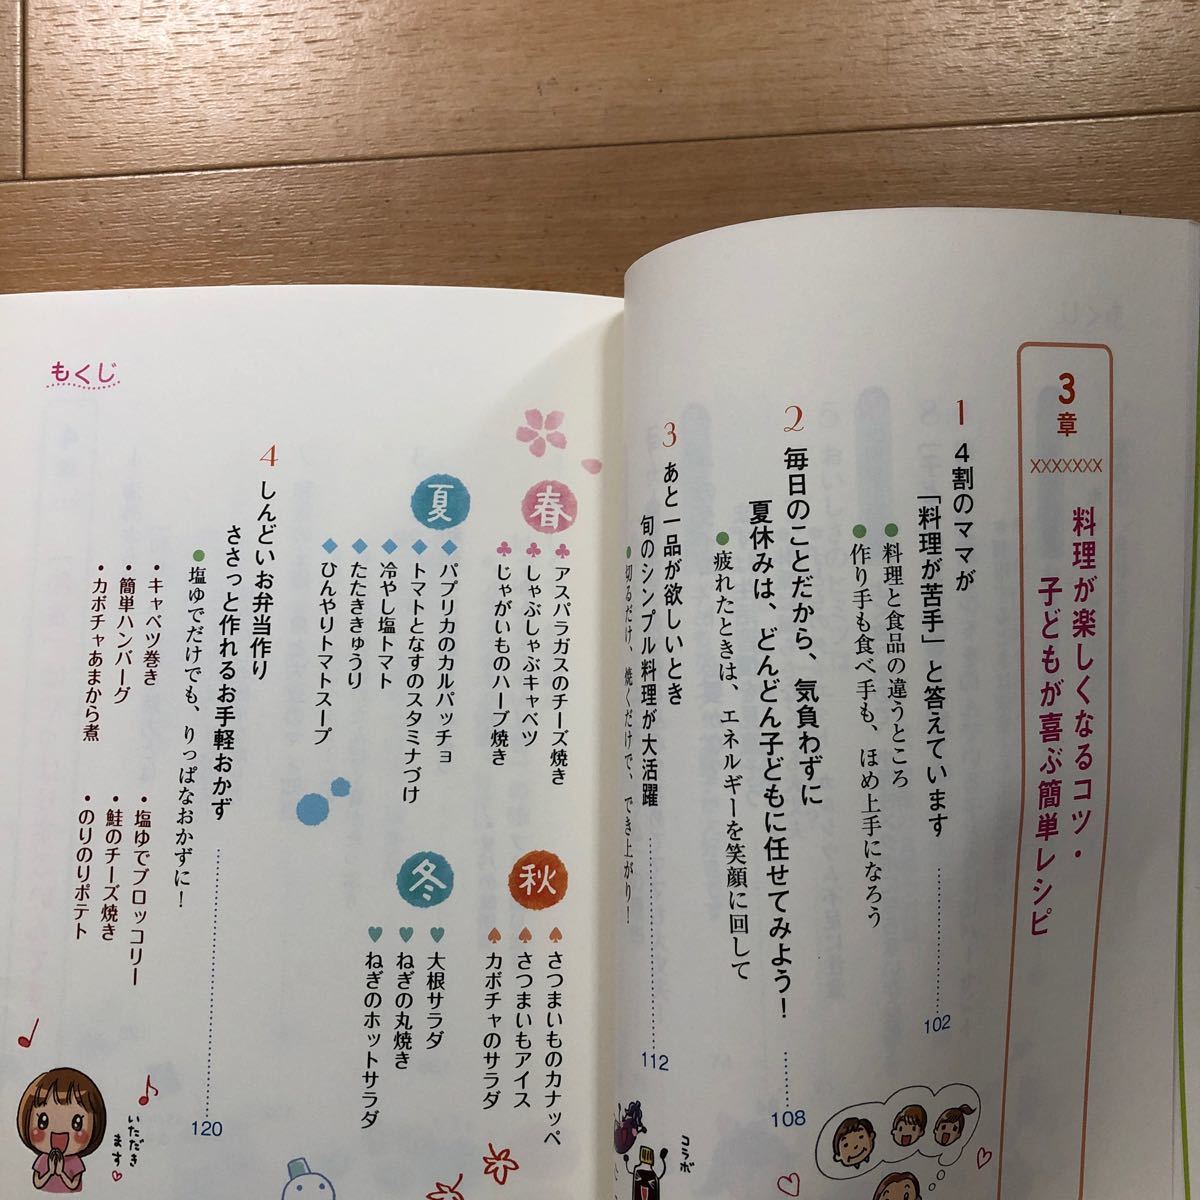 3章
料理が楽しくなるコツ・
子どもが喜ぶ簡単レシピ
1 4割のママが
「料理が苦手」と答えています 102
● 料理と食品の違うところ
● 作り手も食べ手も、ほめ上手になろう
2 毎日のことだから、気負わずに
夏休みは、どんどん子どもに任せてみよう! 108
● 疲れたときは、エネルギーを笑顔に回して
3 あと一品が欲しいとき
旬のシンプル料理が大活躍 112
● 切るだけ、焼くだけで、でき上がり!
コラボ
もくじ
春
♣ アスパラガスのチーズ焼き
♣ しゃぶしゃぶキャベツ
♣ じゃがいものハーブ焼き
夏
◆ パプリカのカルパッチョ
◆ トマトとなすのスタミナづけ
◆ 冷やし塩トマト
◆ たたききゅうり
◆ ひんやりトマトスープ
秋
♠ さつまいものカナッペ
♠ さつまいもアイス
♠ カボチャのサラダ
冬
♥ 大根サラダ
♥ ねぎの丸焼き
♥ ねぎのホットサラダ
4 しんどいお弁当作り
ささっと作れるお手軽おかず 120
● 塩ゆでだけでも、りっぱなおかずに!
・キャベツ巻き
・簡単ハンバーグ
・カボチャあまから煮
・塩ゆでブロッコリー
・鮭のチーズ焼き
・のりのりポテト
いただき
ます♥